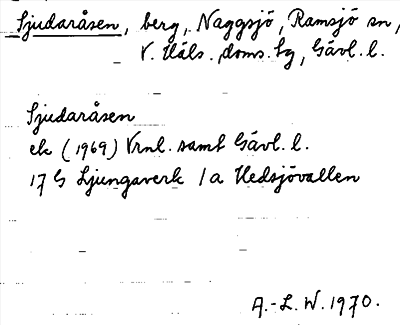 Sjudaråsen, berg, Naggsjö, Ramsjö sn,
V. Häls. doms. tg, Gävl. l.
Sjudaråsen
ek (1969) Vrnl. samt Gävl. l.
17 G Ljungaverk 1 a Hedsjövallen
A.-L. W. 1970.